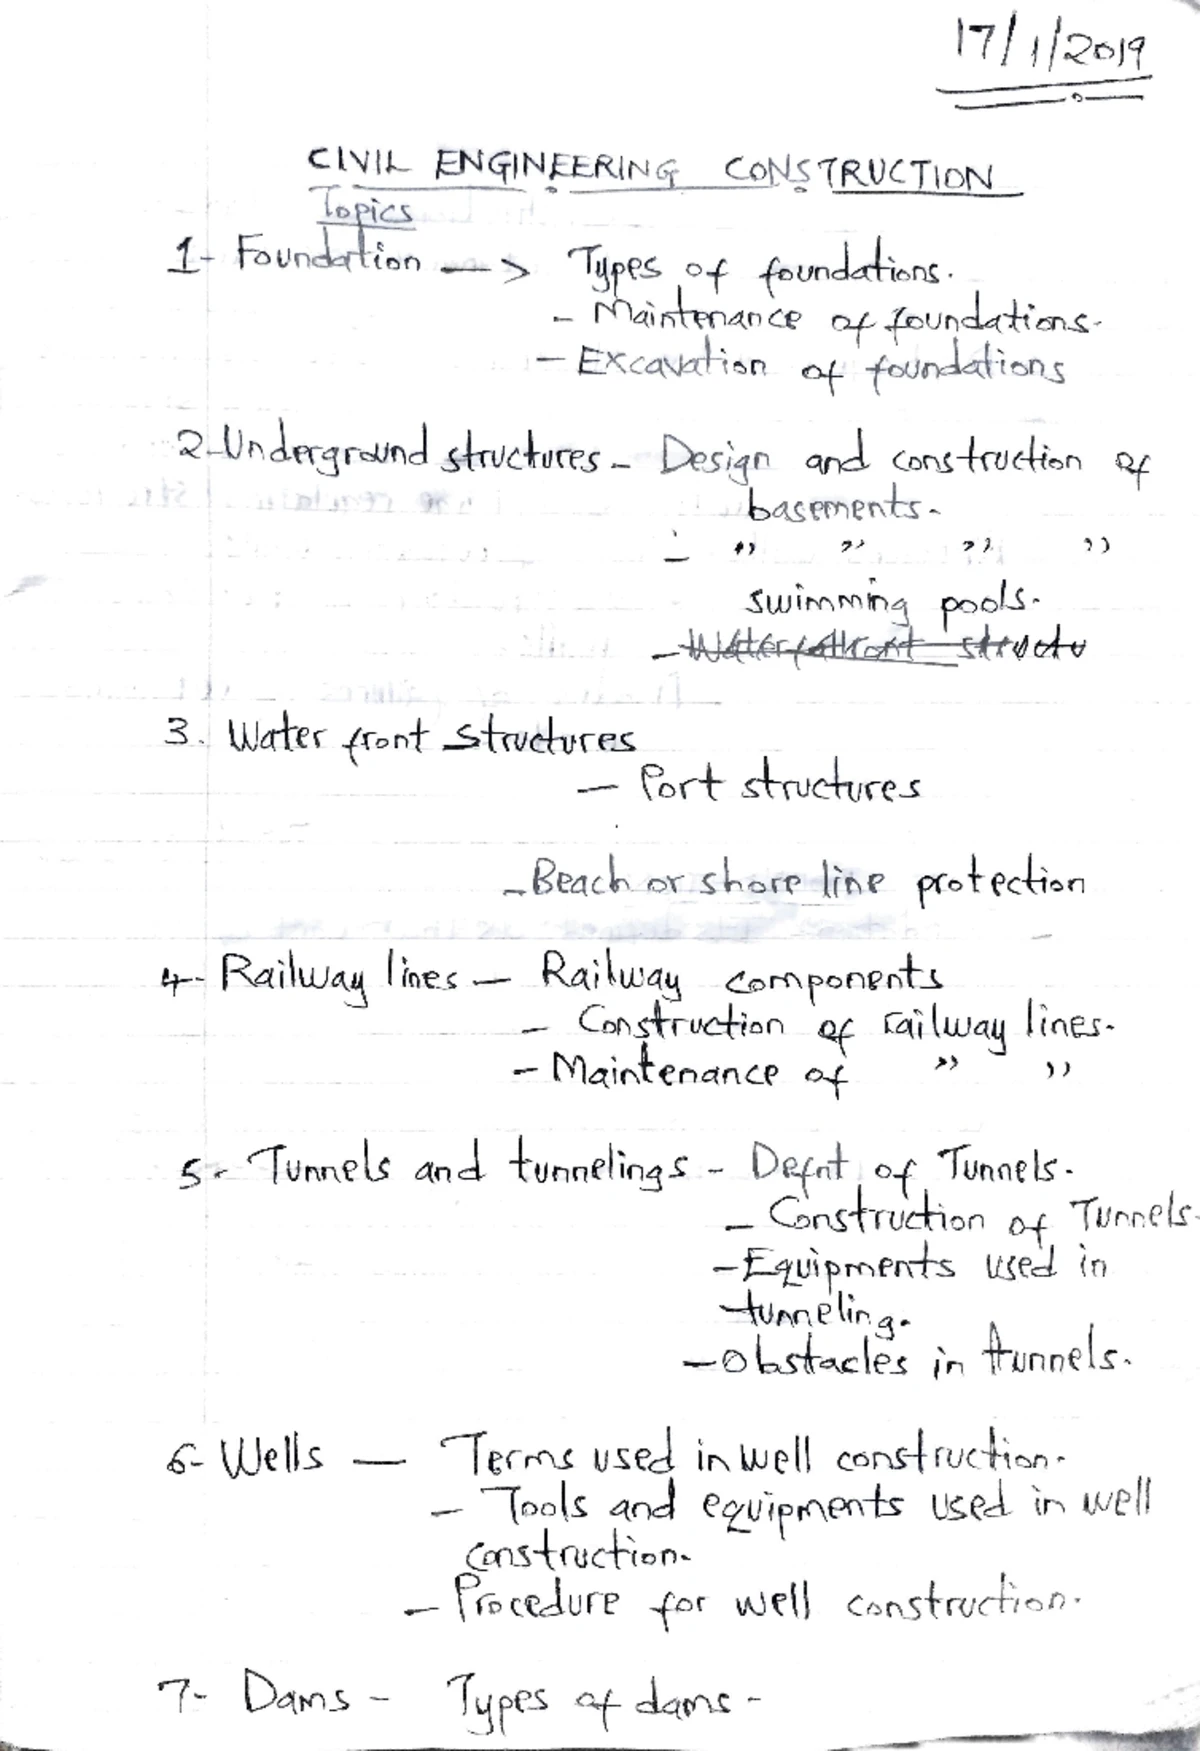 17/1/2019
CIVIL ENGINEERING CONSTRUCTION
Topics
1- Foundation —> Types of foundations.
- Maintenance of foundations.
- Excavation of foundations
2-Underground structures - Design and construction of
basements.
- ,, ,, ,, ,,
swimming pools.
- Water front structu
3. Water front structures
- Port structures
- Beach or shore line protection
4- Railway lines - Railway components
- Construction of railway lines.
- Maintenance of ,, ,,
5- Tunnels and tunnelings - Defnt of Tunnels.
- Construction of Tunnels.
- Equipments used in
tunneling.
- Obstacles in tunnels.
6- Wells — Terms used in well construction.
- Tools and equipments used in well
construction.
- Procedure for well construction.
7- Dams - Types of dams -